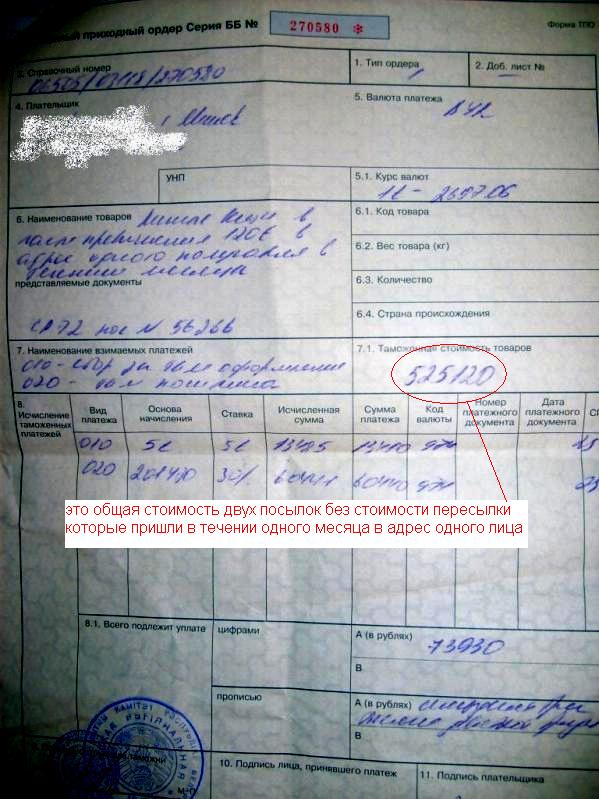 ный приходный ордер Серия ББ №
270580 *
Форма ТПО
3. Справочный номер
06505/031
/270580
1. Тип ордера
1
2. Доб. лист №
4. Плательщик
г Минск
5. Валюта платежа
BYR
УНП
5.1. Курс валют
1€ - 2697.06
6. Наименование товаров
личные вещи в
части превышения 120€ в
адрес одного
в
течении месяца
6.1. Код товара
6.2. Вес товара (кг)
6.3. Количество
6.4. Страна происхождения
представляемые документы
CP72
№ 56266
7. Наименование взимаемых платежей
010 - сбор за там оформление
020 - там пошлина
7.1. Таможенная стоимость товаров
525120
8.
Исчисление таможенных платежей
Вид платежа
Основа начисления
Ставка
Исчисленная сумма
Сумма платежа
Код валюты
Номер платежного документа
Дата платежного документа
СП
010 5€ 5€ 13485 974
020 201470 30% 60441 60440 974
это общая стоимость двух посылок без стоимости пересылки
которые пришли в течении одного месяца в адрес одного лица
8.1. Всего подлежит уплате
цифрами
А (в рублях)
73930
В
прописью
А (в рублях)
В
10. Подпись лица, принявшего платеж
11. Подпись плательщика